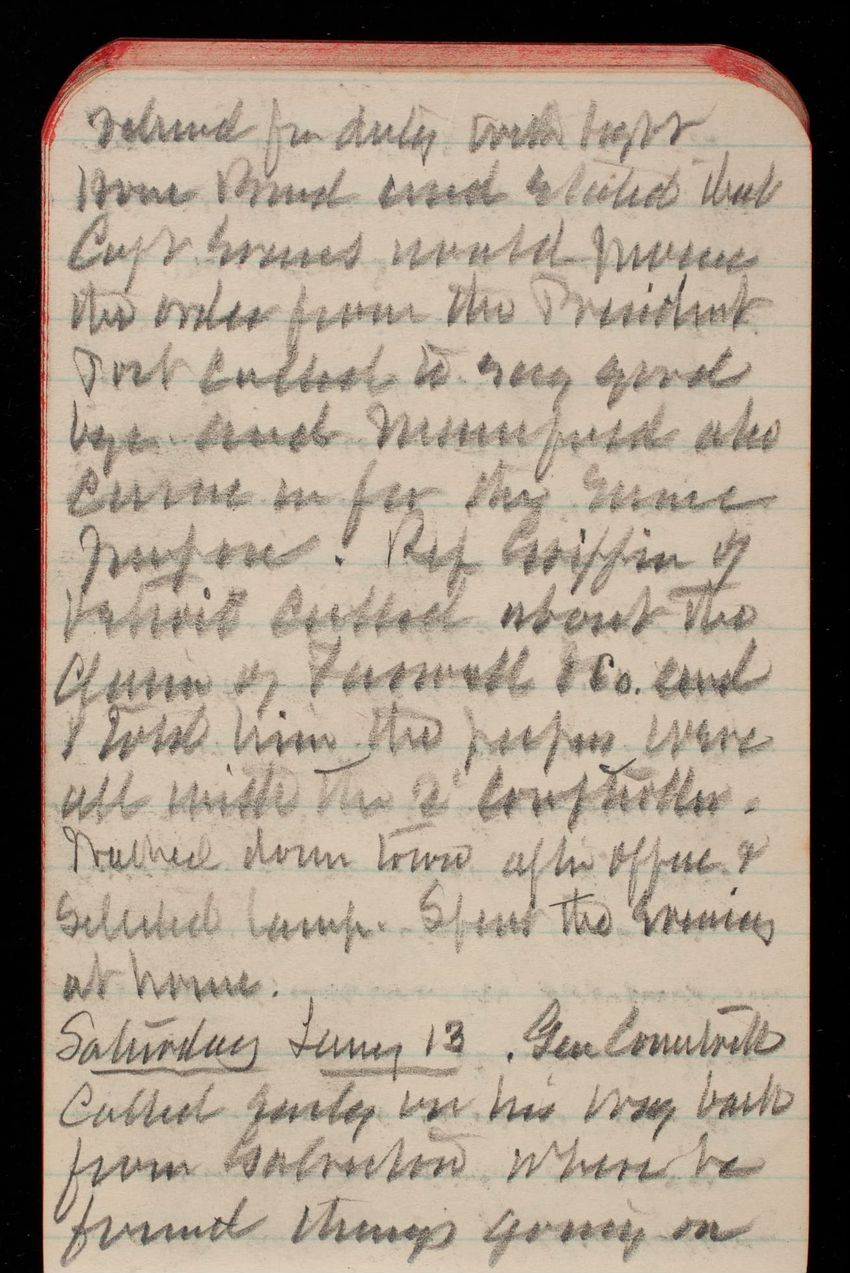 relieved fm duty with Light
House Board and stated that
Capt Evans would procure
the order from the President
Port called to say good
bye and Mumford also
came in for the same
purpose. Rep Griffin of
Detroit called about the
claim of Farwell & Co. and
I told him the papers were
all with the 2d Comptroller.
Walked down town after office &
selected lamp. Spent the evening
at home.
Saturday Jany 13. Gen Comstock
called early on his way back
from Galveston where he
found things going on